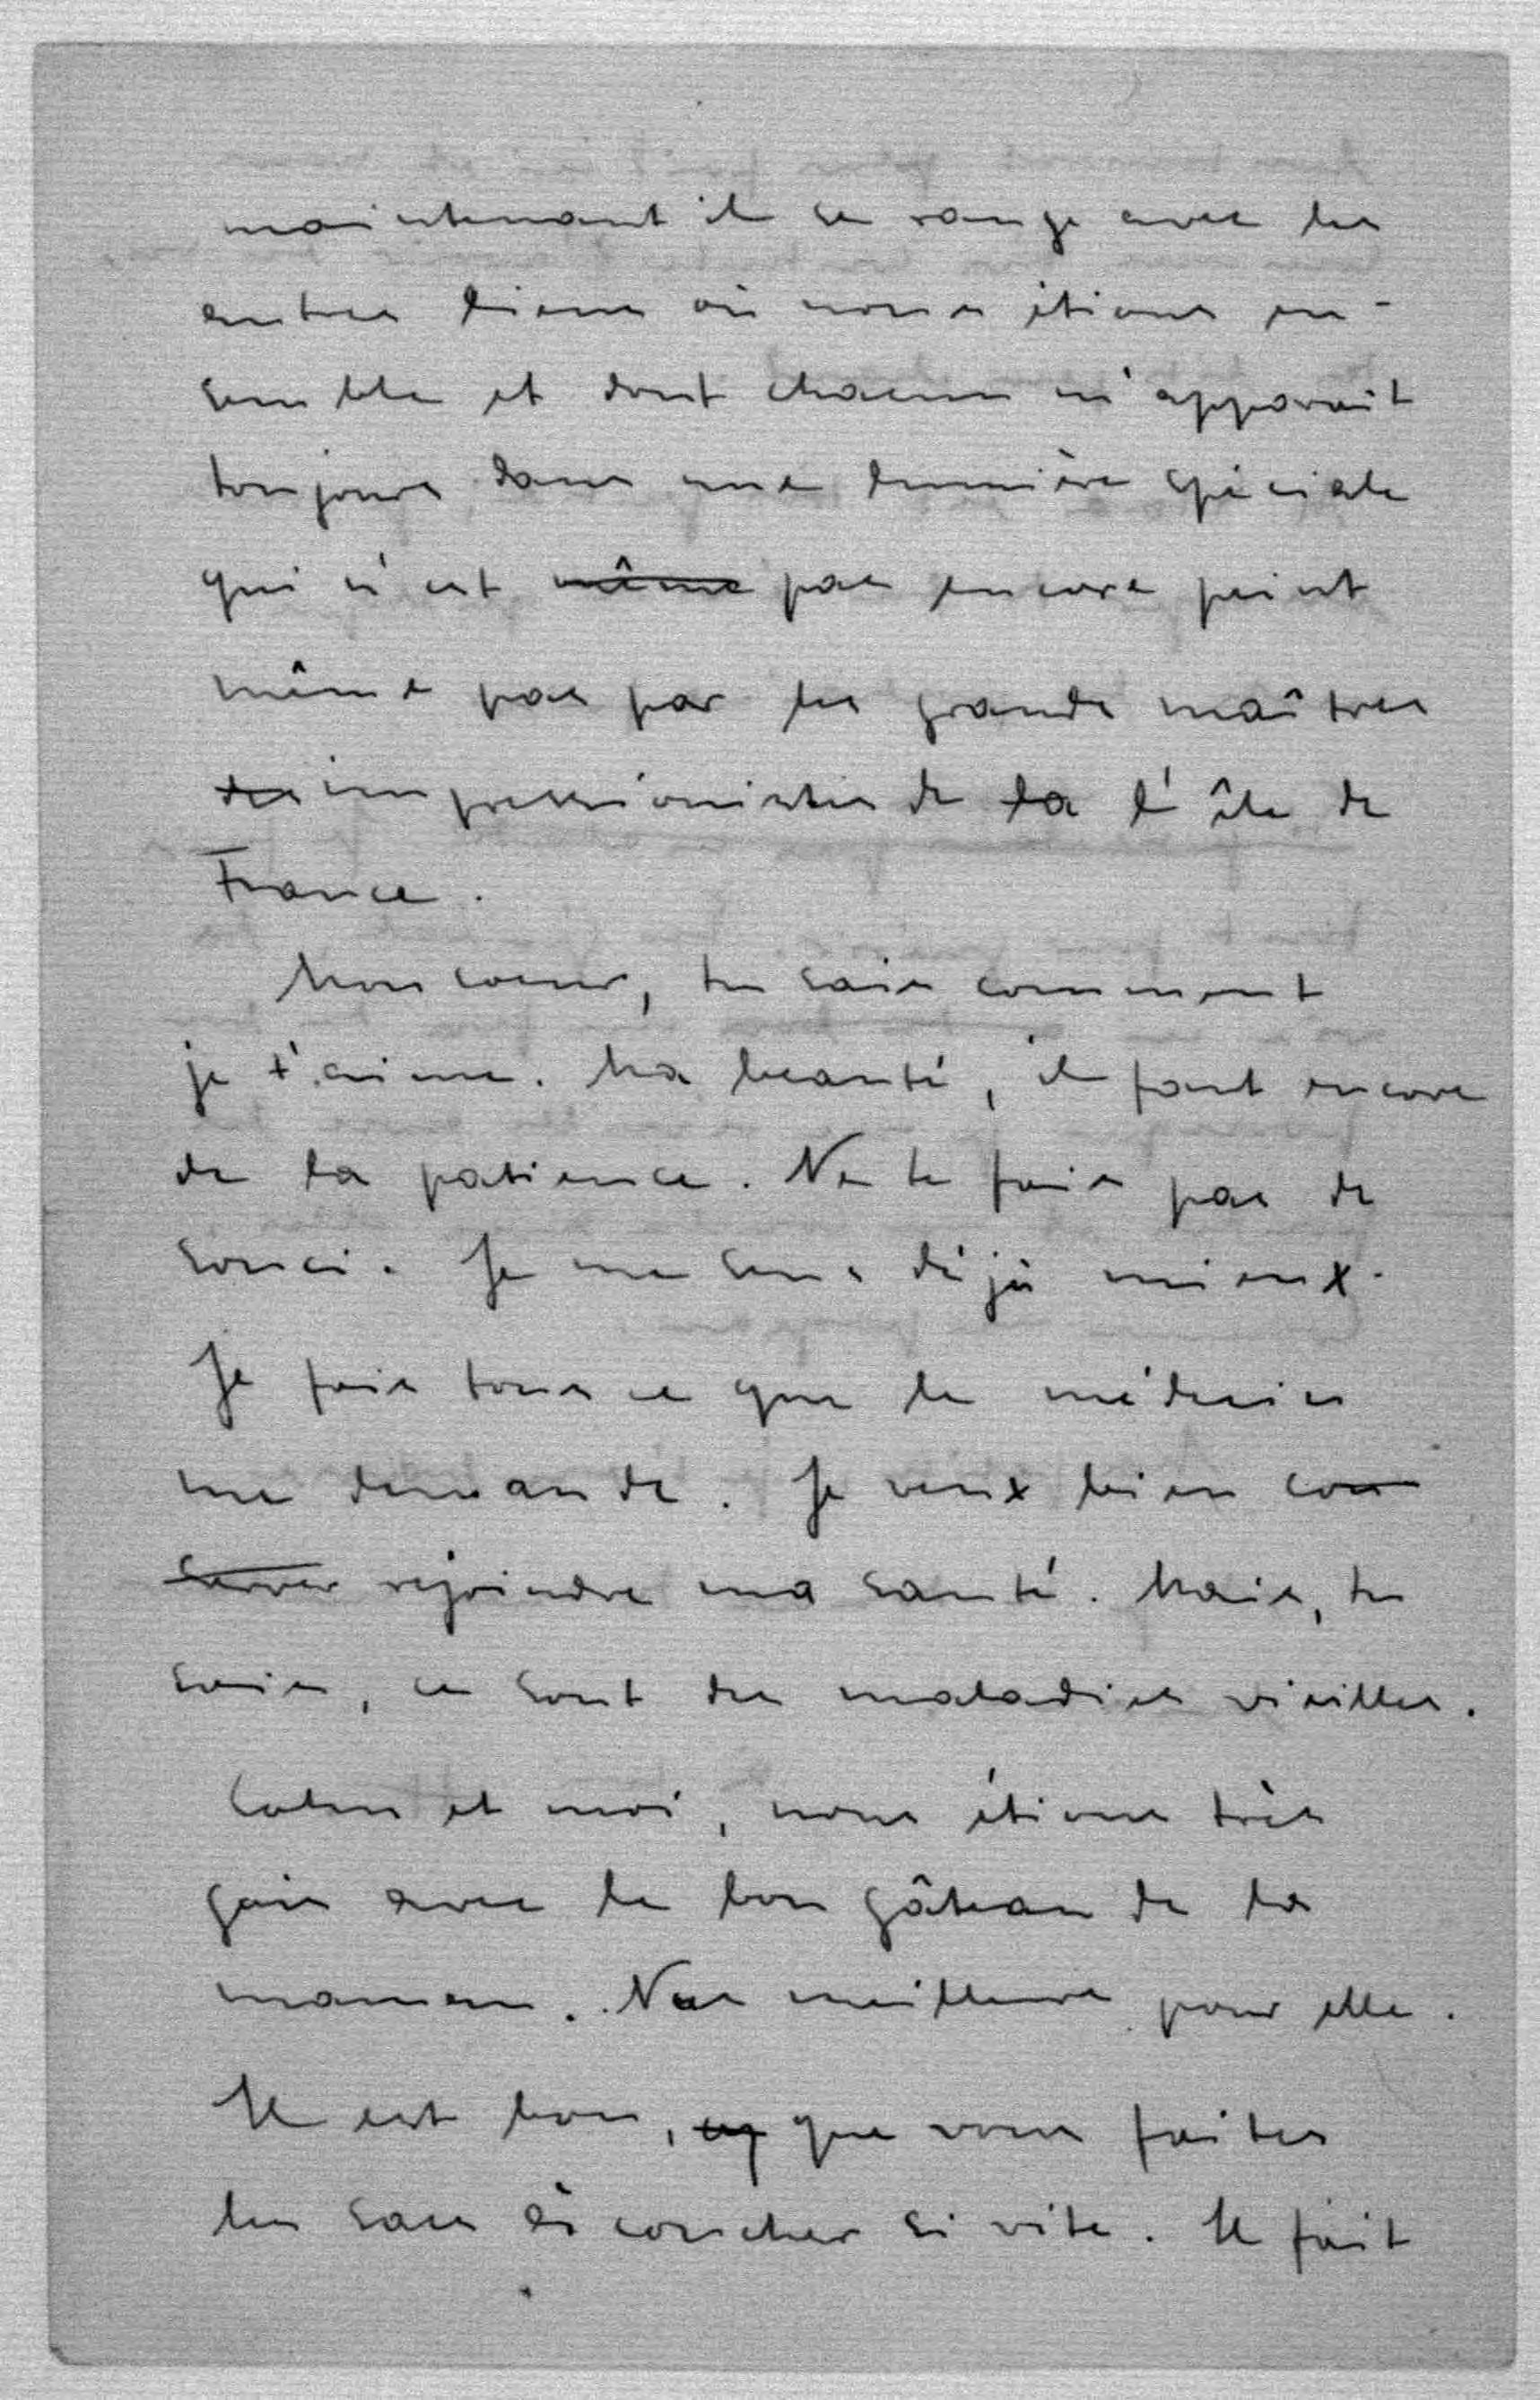 maintenant il se range avec les
autres liens où nous étions en-
semble et dont chacun m'apparait
toujours dans une lumière spéciale
qui n'est même pas encore peint
même pas par les grands maîtres
des impressionistes de la l'île de
France.
Mon coeur, tu sais comment
je t'aime. Ma beauté, il faut encore
de la patience. Ne te fais pas de
souci. Je me sens déjà mieux.
Je fais tous ce que le médecin
me demande. Je veux bien con
server rejoindre ma santé. Mais, tu
sais, ce sont des maladies vieilles.
et moi, nous étions très
gais avec le bon gâteau de ta
maman. Nos meilleurs pour elle.
Il est bon, que vous faites
les sacs à coucher si vite. Il fait